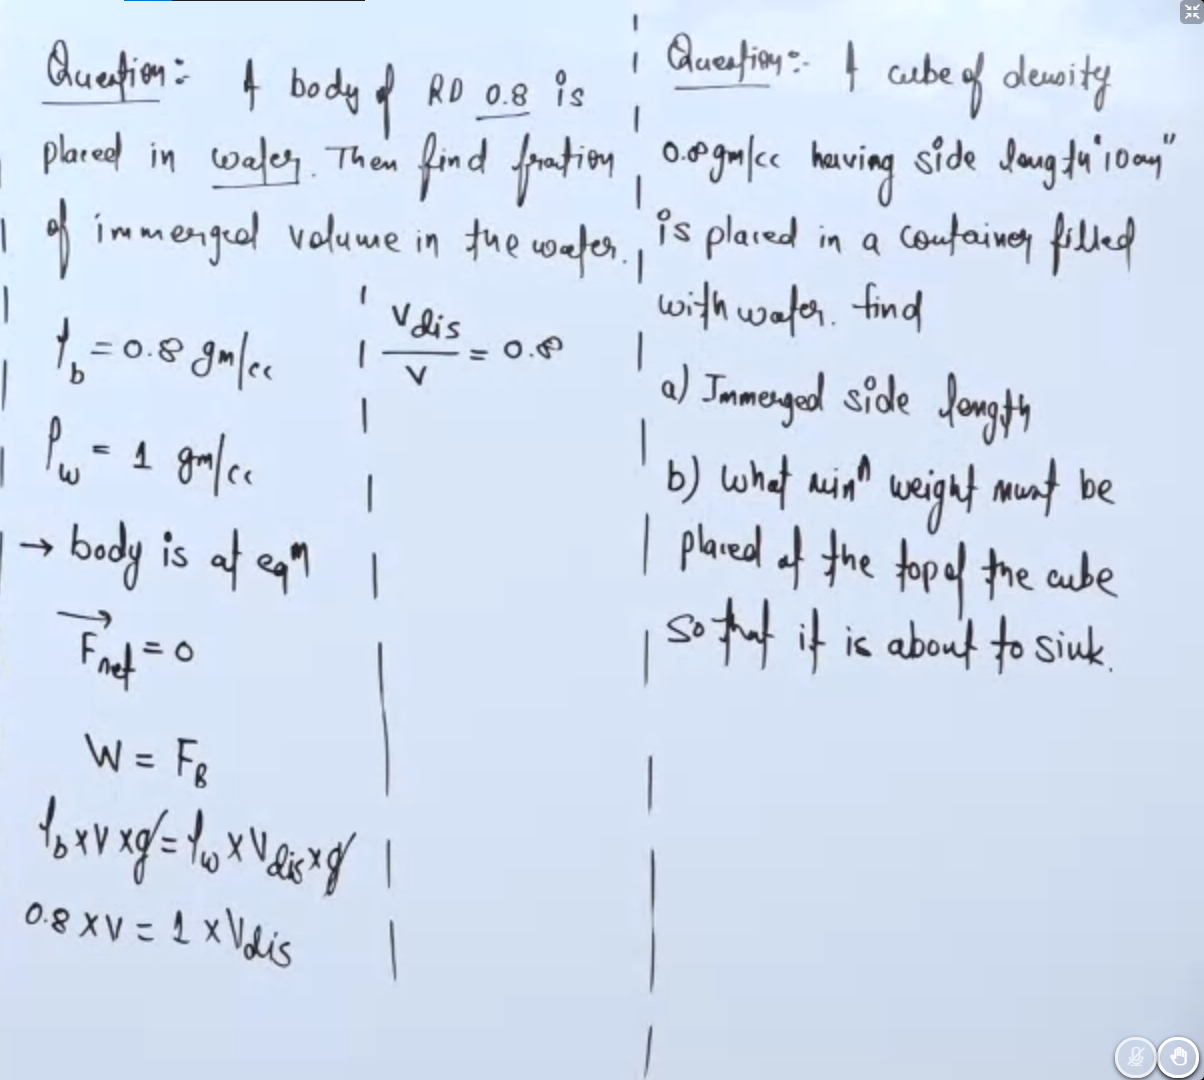 Question:
A body of RD 0.8 is
placed in water. Then find fration
of immerged volume in the water.
ρb = 0.8 gm/cc
ρw = 1 gm/cc
→ body is at eqⁿ
F⃗net = 0
W = FB
ρb × V × g = ρw × Vdis × g
0.8 × V = 1 × Vdis
Vdis / V = 0.8
Question:- A cube of density
0.8 gm/cc having side length "10cm"
is placed in a container filled
with water. find
a) Immerged side length
b) what minᵐ weight must be
placed at the top of the cube
so that it is about to sink.